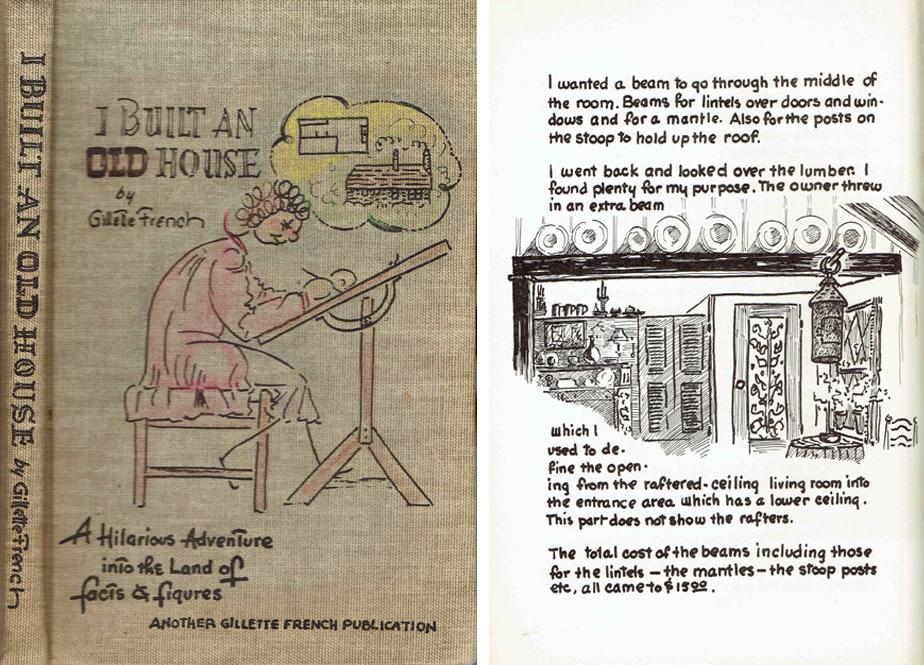 I BUILT AN OLD HOUSE by Gillette French
I BUILT AN
OLD HOUSE
by
Gillette French
A Hilarious Adventure
into the Land of
facts & figures
ANOTHER GILLETTE FRENCH PUBLICATION
I wanted a beam to go through the middle of
the room. Beams for lintels over doors and win-
dows and for a mantle. Also for the posts on
the stoop to hold up the roof.
I went back and looked over the lumber. I
found plenty for my purpose. The owner threw
in an extra beam
which I
used to de-
fine the open-
ing from the raftered-ceiling living room into
the entrance area which has a lower ceiling.
This part does not show the rafters.
The total cost of the beams including those
for the lintels — the mantles — the stoop posts
etc, all came to $15.00.